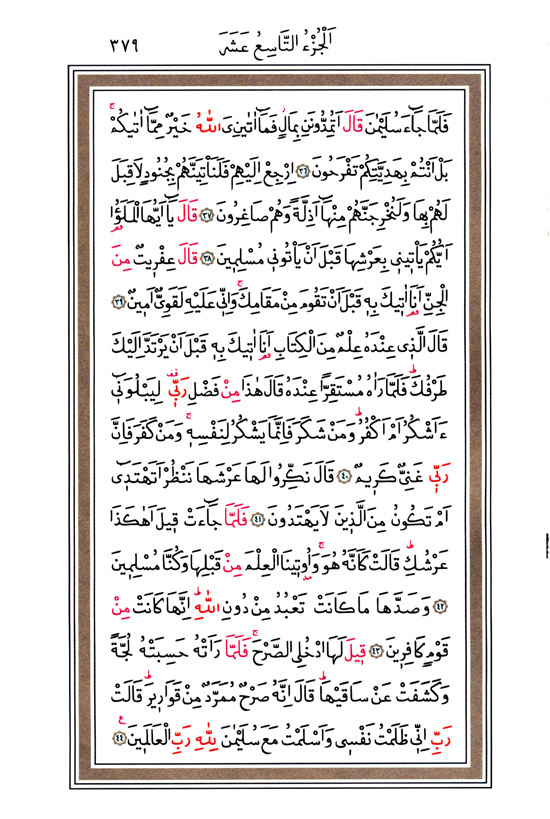 اَلْجُزْءُ التَّاسِعُ عَشَرَ ٣٧٩
فَلَمَّا جَٓاءَ سُلَيْمٰنَ قَالَ اَتُمِدُّونَنِ بِمَالٍۘ فَمَٓا اٰتٰينِيَ اللّٰهُ خَيْرٌ مِمَّٓا اٰتٰيكُمْۚ
بَلْ اَنْتُمْ بِهَدِيَّتِكُمْ تَفْرَحُونَ ٣٦ اِرْجِعْ اِلَيْهِمْ فَلَنَأْتِيَنَّهُمْ بِجُنُودٍ لَا قِبَلَ
لَهُمْ بِهَا وَلَنُخْرِجَنَّهُمْ مِنْهَٓا اَذِلَّةً وَهُمْ صَاغِرُونَ ٣٧ قَالَ يَٓا اَيُّهَا الْمَلَؤُ۬ا
اَيُّكُمْ يَأْتٖينٖي بِعَرْشِهَا قَبْلَ اَنْ يَأْتُونٖي مُسْلِمٖينَ ٣٨ قَالَ عِفْرٖيتٌ مِنَ
الْجِنِّ اَنَا۬ اٰتٖيكَ بِهٖ قَبْلَ اَنْ تَقُومَ مِنْ مَقَامِكَۚ وَاِنّٖي عَلَيْهِ لَقَوِيٌّ اَمٖينٌ ٣٩
قَالَ الَّذٖي عِنْدَهُ عِلْمٌ مِنَ الْكِتَابِ اَنَا۬ اٰتٖيكَ بِهٖ قَبْلَ اَنْ يَرْتَدَّ اِلَيْكَ
طَرْفُكَؕ فَلَمَّا رَاٰهُ مُسْتَقِرًّا عِنْدَهُ قَالَ هٰذَا مِنْ فَضْلِ رَبّٖيࣞ لِيَبْلُوَنٖٓي
ءَاَشْكُرُ اَمْ اَكْفُرُؕ وَمَنْ شَكَرَ فَاِنَّمَا يَشْكُرُ لِنَفْسِهٖۚ وَمَنْ كَفَرَ فَاِنَّ
رَبّٖي غَنِيٌّ كَرٖيمٌ ٤٠ قَالَ نَكِّرُوا لَهَا عَرْشَهَا نَنْظُرْ اَتَهْتَدٖٓي
اَمْ تَكُونُ مِنَ الَّذٖينَ لَا يَهْتَدُونَ ٤١ فَلَمَّا جَٓاءَتْ قٖيلَ اَهٰكَذَا
عَرْشُكِؕ قَالَتْ كَاَنَّهُ هُوَۚ وَاُو۫تٖينَا الْعِلْمَ مِنْ قَبْلِهَا وَكُنَّا مُسْلِمٖينَ
٤٢ وَصَدَّهَا مَا كَانَتْ تَعْبُدُ مِنْ دُونِ اللّٰهِؕ اِنَّهَا كَانَتْ مِنْ
قَوْمٍ كَافِرٖينَ ٤٣ قٖيلَ لَهَا ادْخُلِي الصَّرْحَۚ فَلَمَّا رَاَتْهُ حَسِبَتْهُ لُجَّةً
وَكَشَفَتْ عَنْ سَاقَيْهَاؕ قَالَ اِنَّهُ صَرْحٌ مُمَرَّدٌ مِنْ قَوَارٖيرَؕ قَالَتْ
رَبِّ اِنّٖي ظَلَمْتُ نَفْسٖي وَاَسْلَمْتُ مَعَ سُلَيْمٰنَ لِلّٰهِ رَبِّ الْعَالَمٖينَ ٤٤ ع